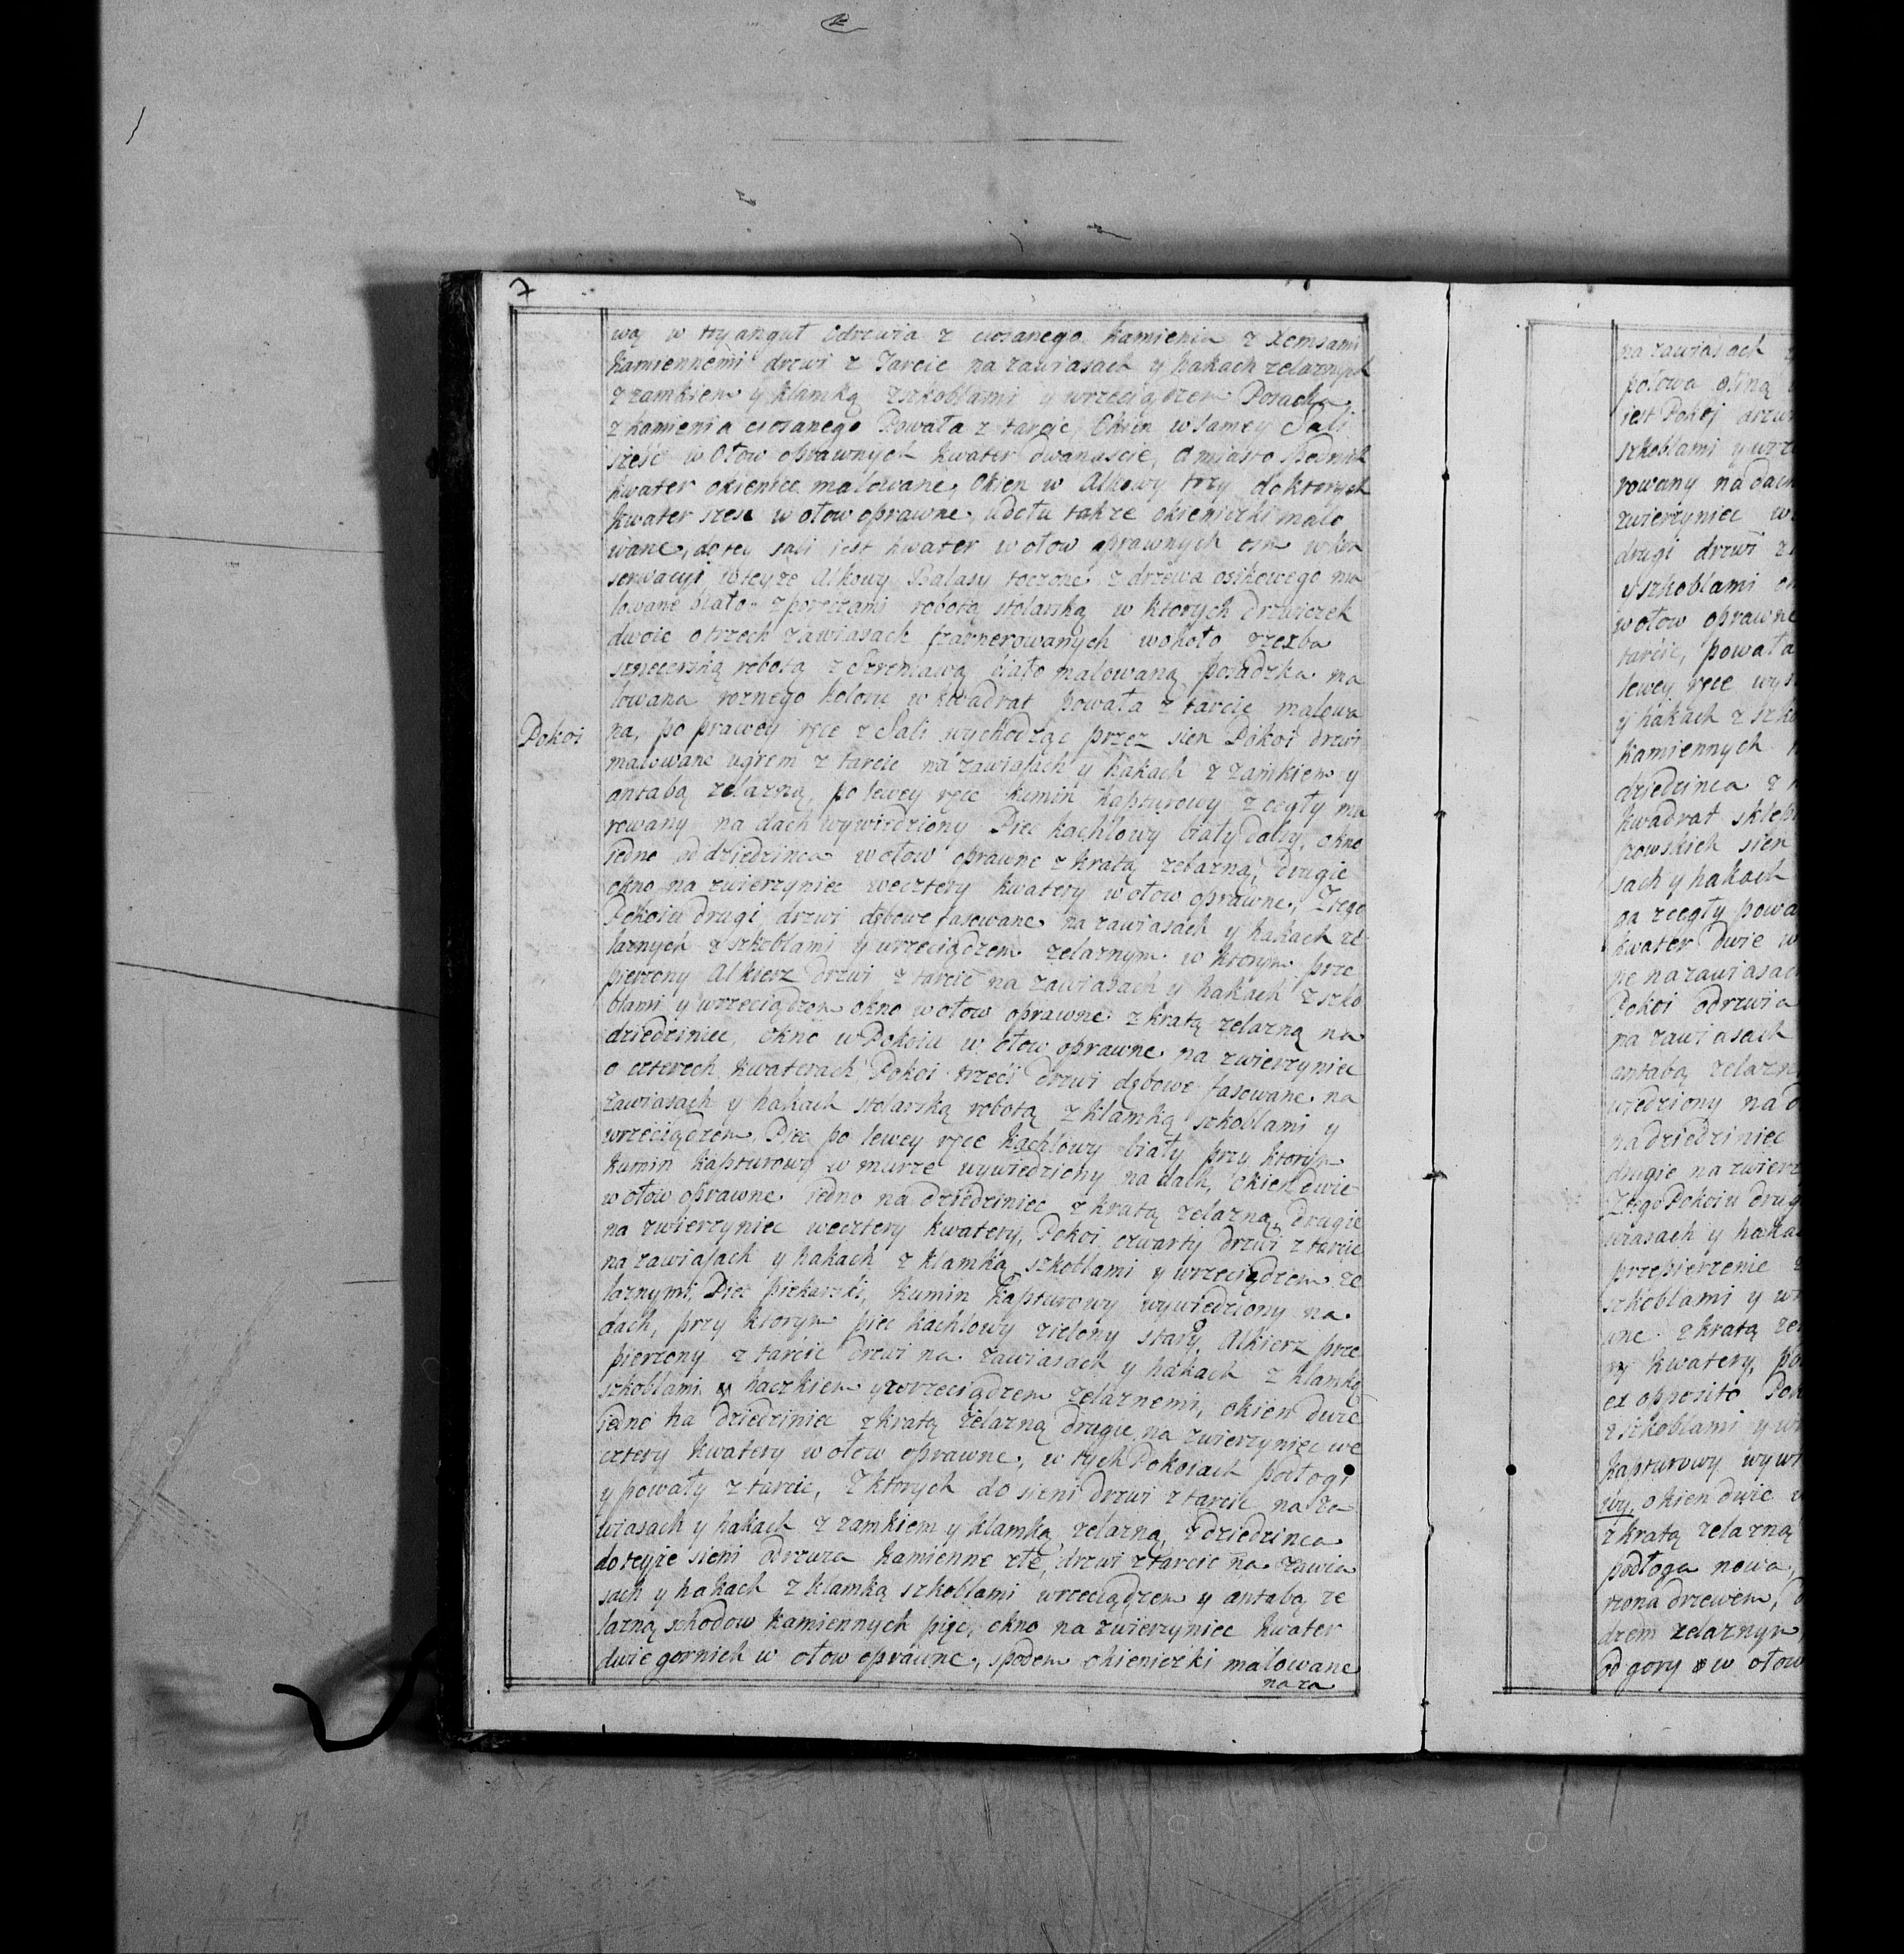 7
wą w tryanguł Odrzwia z ciosanego kamienia z Xemsami
kamiennemi drzwi z Tarcic na zawiasach y hakach zelaznych
z zamkiem y klamką z szkoblami y wrzeciądzem Posadzka
z kamienia ciosanego Powała z tarcic, Okien w samey Sali
sześć w Ołow oprawnych kwater dwanaście, a miasto spodnich
kwater okienice malowane, Okien w Alkowy trzy do ktorych
kwater szesc w ołow oprawne, u dołu także okieniczki malo
wane, do tey sali iest kwater w ołow oprawnych osm w kon
serwacyi, w teyze Alkowy Balasy toczone z drzewa osikowego ma
lowane biało z poręczami robotą stolarską w ktorych drzwiczek
dwoie o trzech zawiasach wokoło rzezba
snycerską robotą z Szreniawą biało malowaną posadzka ma
lowana roznego koloru w kwadrat powała z tarcic malowa
Pokoi
na, po prawey ręce z Sali wychodząc przez sien Pokoi drzwi
malowane ugrem z tarcic na zawiasach y hakach z zamkiem y
antabą zelazną, po lewey ręce kumin kapturowy z cegły mu
rowany na dach wywiedziony Piec kachlowy biały dobry, okno
iedno od dziedzinca w ołow oprawne z kratą zelazną, drugie
okno na zwierzyniec we cztery kwatery w ołow oprawne, Z tego
Pokoiu drugi drzwi dębowe fasowane na zawiasach y hakach ze
laznych z szkoblami y wrzeciądzem zelaznym w ktorym prze
pierzony Alkierz drzwi z tarcic na zawiasach y hakach z szko
blami y wrzeciądzem okno w ołow oprawne z kratą zelazną na
dziedziniec, okno w Pokoiu w ołow oprawne na zwierzyniec
o czterech kwaterach Pokoi trzeci drzwi dębowe fasowane na
zawiasach y hakach stolarską robotą z klamką szkoblami y
wrzeciądzem, Piec po lewey ręce kachlowy biały przy ktorym
kumin kapturowy w murze wywiedziony na dach, okien dwie
w ołow oprawne iedno na dziedziniec z kratą zelazną, drugie
na zwierzyniec we cztery kwatery, Pokoi czwarty drzwi z tarcic
na zawiasach y hakach z klamką szkoblami y wrzeciądzem ze
laznymi, Piec piekarski, kumin kapturowy wywiedziony na
dach, przy ktorym piec kachlowy zielony stary, Alkierz prze
pierzony z tarcic drzwi na zawiasach y hakach z klamką
szkoblami y haczkiem y wrzeciądzem zelaznemi, okien dwie
iedno na dziedziniec z kratą żelazną drugie na zwierzyniec we
cztery kwatery w ołow oprawne, w tych Pokoiach podłogi
y powały z tarcic, Z ktorych do sieni drzwi z tarcic na za
wiasach y hakach z zamkiem y klamką zelazną, z dziedzinca
do teyże sieni odrzwia kamienne złe, drzwi z tarcic na zawia
sach y hakach z klamką szkoblami wrzeciądzem y antabą ze
lazną schodow kamiennych pięc, okno na zwierzyniec kwater
dwie gornich w ołow oprawne, spodem okieniczki malowane
na za
na zawiasach
połowa
iest Pokoj drzw
szkoblami y wrze
rowany na dach
zwierzyniec w
drugi drzwi z
y szkoblami
w ołow oprawne
tarcic, powała
lewey ręce wy
y hakach z szko
kamiennych
dziedzinca z
kwadrat sklepi
sien
sach y hakach
ga z cegły powa
kwater dwie w
ne na zawiasach
Pokoi odrzwia
na zawiasach
antabą zelazn
wiedziony na d
na dziedziniec
drugie na zwierz
Z tego Pokoiu drug
wiasach y haka
przepierzenie z
szkoblami y wr
wne z kratą ze
ry kwatery, po
ex opposito Pok
z szkoblami y wr
kapturowy wywi
wy, okien dwie w
z kratą zelazną
podłoga nowa,
rzona drzewem,
dzem zelaznym
od gory w ołow